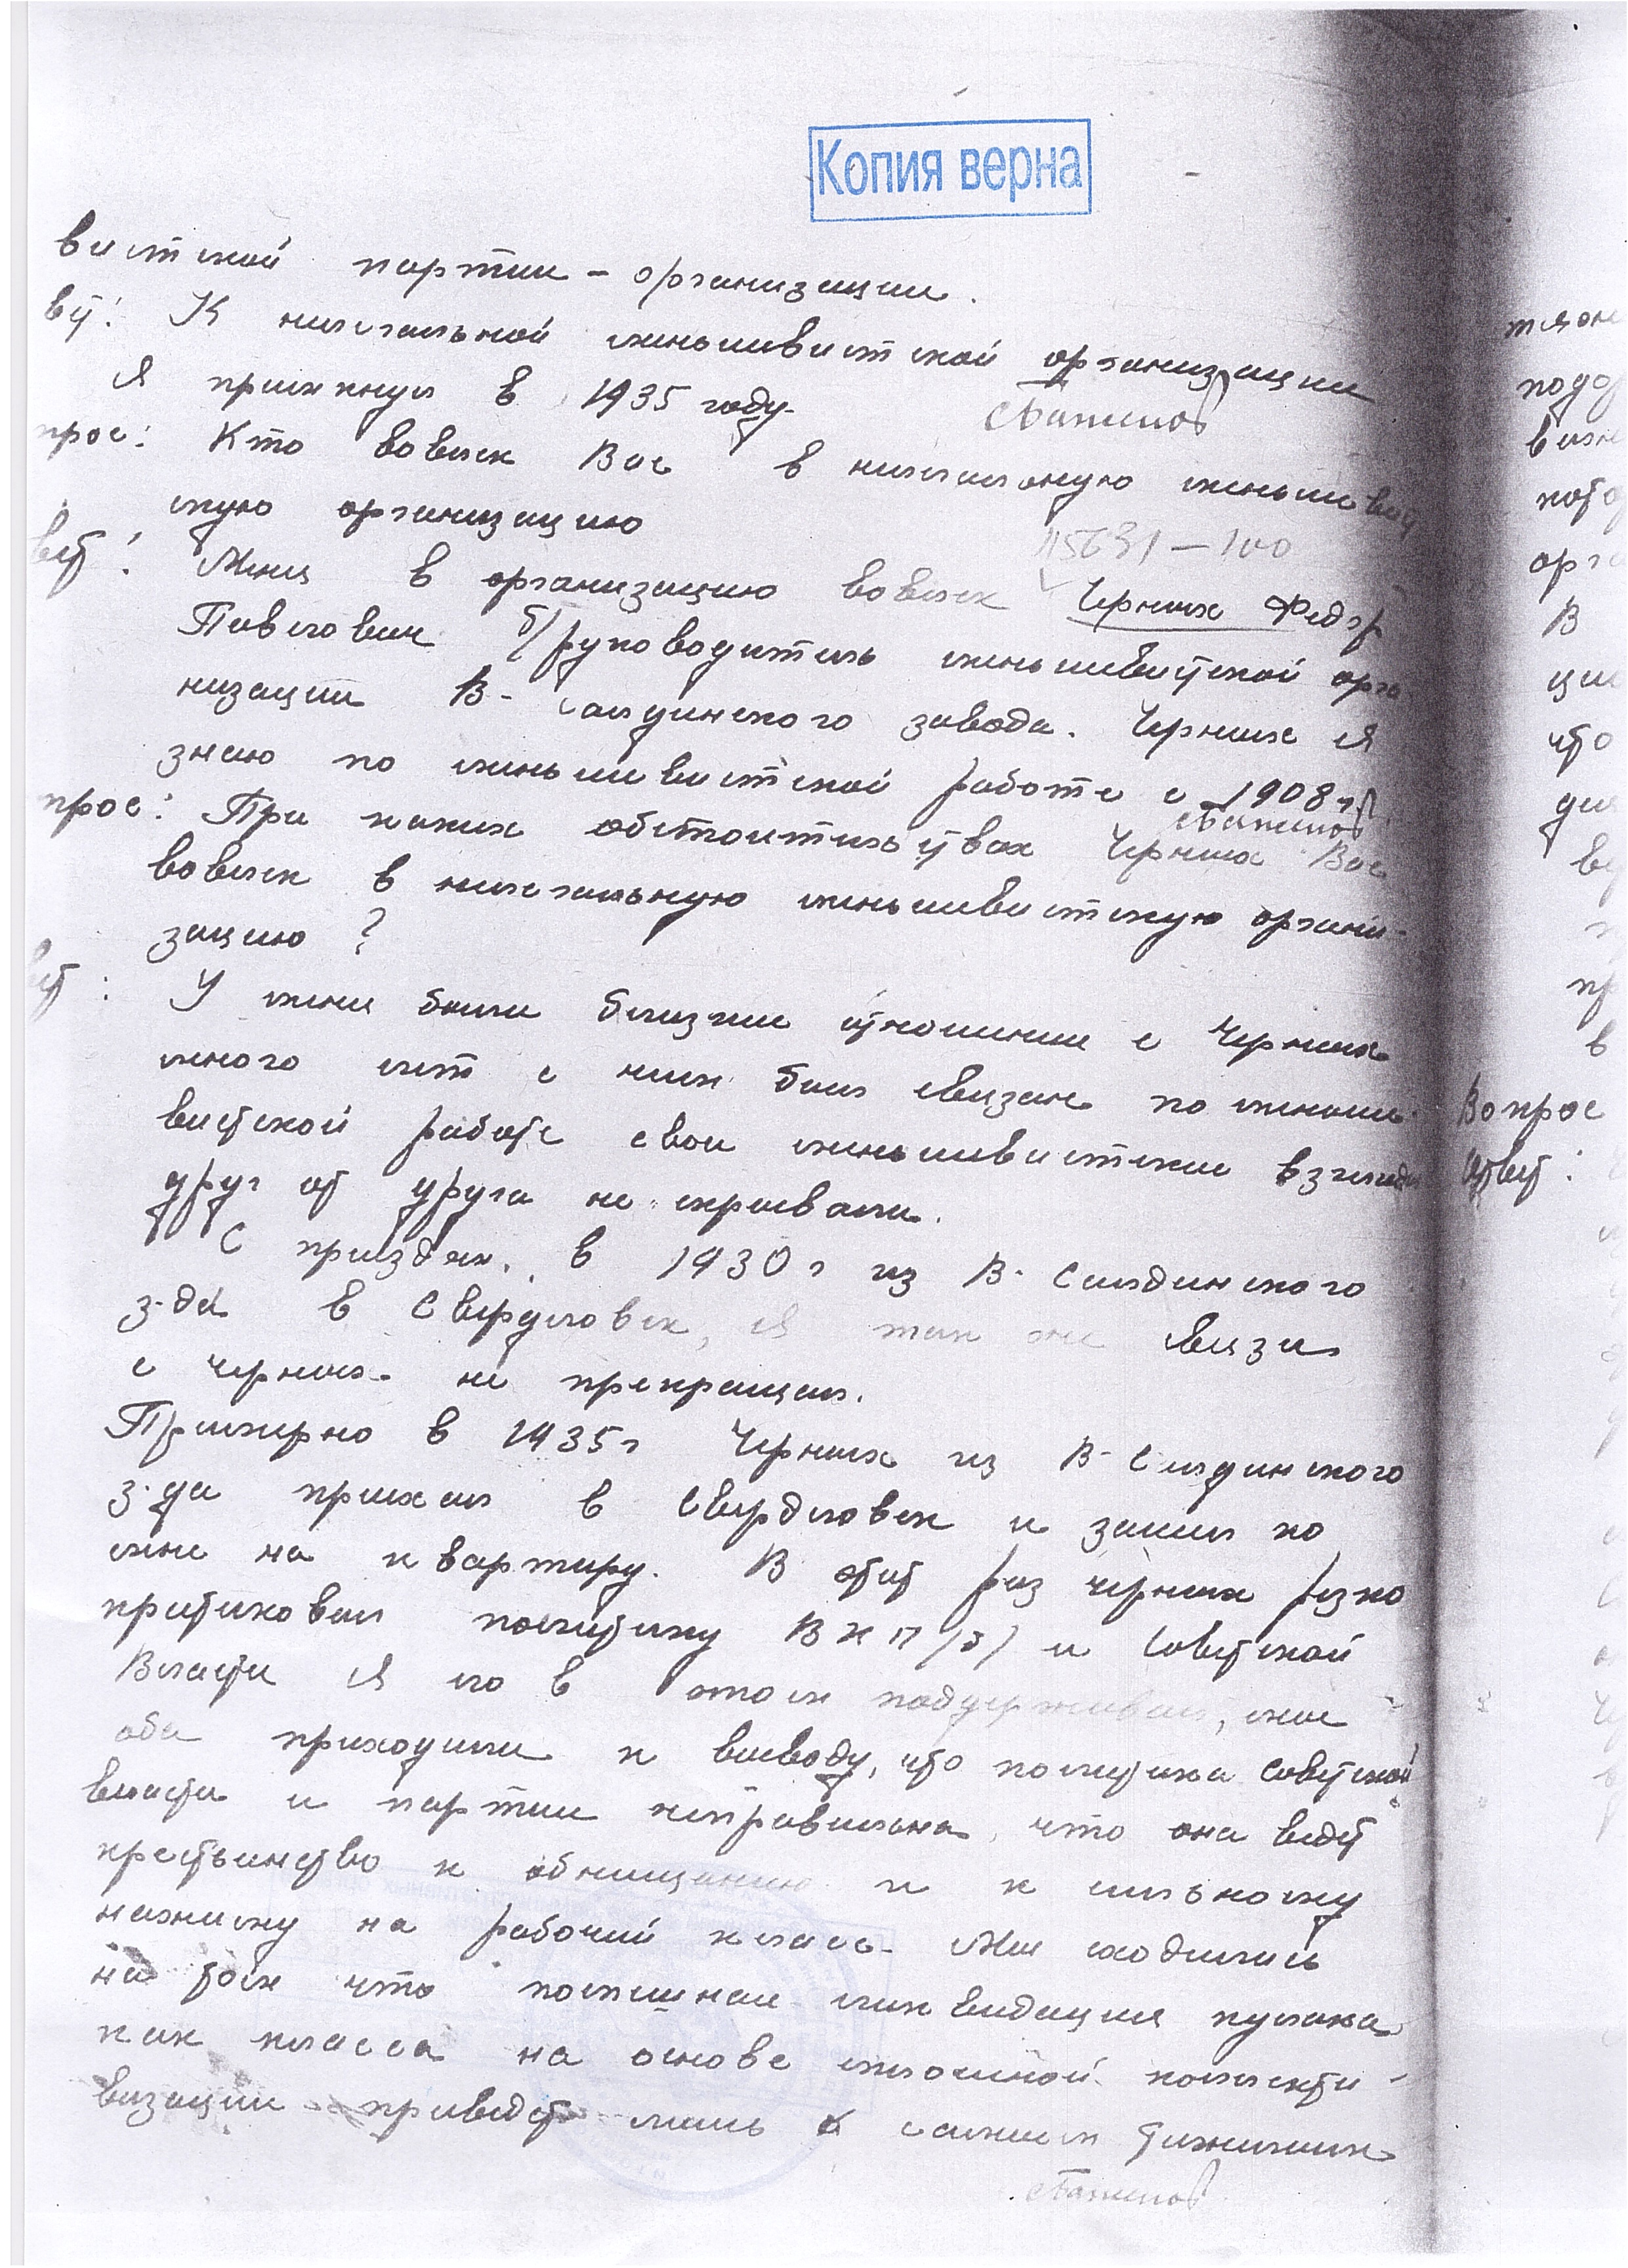 Копия верна
вистской партии - организации.
вет: К нелегальной меньшевистской организации
я примкнул в 1935 году.
прос: Кто вовлек Вас в нелегальную меньшевист
скую организацию
15631 – 100
вет: Меня в организацию вовлек Черных Федор
Павлович б/руководитель меньшевистской орга
низации В-Салдинского завода. Черных я
знаю по меньшевистской работе с 1908 г.
прос: При каких обстоятельствах Черных Вас
вовлек в нелегальную меньшевистскую органи-
зацию?
вет: У меня были близкие отношения с Черных
много лет с ним был связан по меньше
вистской работе свои меньшевистские взгляды
друг от друга не скрывали.
С приездом в 1930 г из В-Салдинского
з-да в Свердловск, я так же связи
с Черных не прекращал.
Примерно в 1935 г Черных из В-Салдинского
з-да приехал в Свердловск и зашел ко
мне на квартиру. В этот раз Черных резко
критиковал политику ВКП/б/ и Советской
Власти я его в этом поддерживал, мы
оба приходили к выводу, что политика Советской
власти и партии неправильна, что она ведет
крестьянство к обнищанию и к сильному
нажиму на рабочий класс. Мы сходились
на том что поспешная ликвидация кулака
как класса на основе сплошной коллекти-
визации приведет лишь к самым тяжелым
тяже
орга
В
ции
что
Вопрос
Ответ: